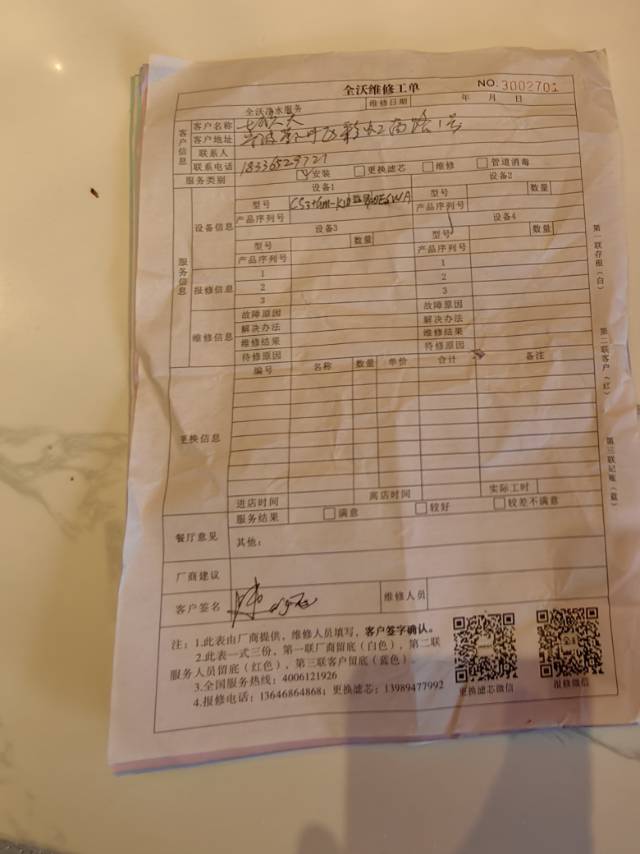 全沃维修工单
NO. 3002701
全沃净水服务
维修日期 年 月 日
客户信息
客户名称
客户地址 彩虹南路1号
联系人
联系电话 18336529721
服务类别 安装 更换滤芯 维修 管道消毒
服务信息
设备信息
设备1 设备2
型号 数量
产品序列号 产品序列号
设备3 设备4
型号 数量 型号 数量
产品序列号 产品序列号
报修信息
1 1
2 2
3 3
维修信息
故障原因 故障原因
解决办法 解决办法
维修结果 维修结果
待修原因 待修原因
更换信息
编号 名称 数量 单价 合计 备注
进店时间 离店时间 实际工时
服务结果 满意 较好 较差不满意
餐厅意见 其他：
厂商建议
客户签名 维修人员
注：1.此表由厂商提供，维修人员填写，客户签字确认。
2.此表一式三份，第一联厂商留底（白色），第二联
服务人员留底（红色），第三联客户留底（蓝色）。
3.全国服务热线：4006121926
4.报修电话：13646864868；更换滤芯：13989477992
更换滤芯微信 报修微信
第一联存根（白）
第二联客户（红）
第三联记账（蓝）